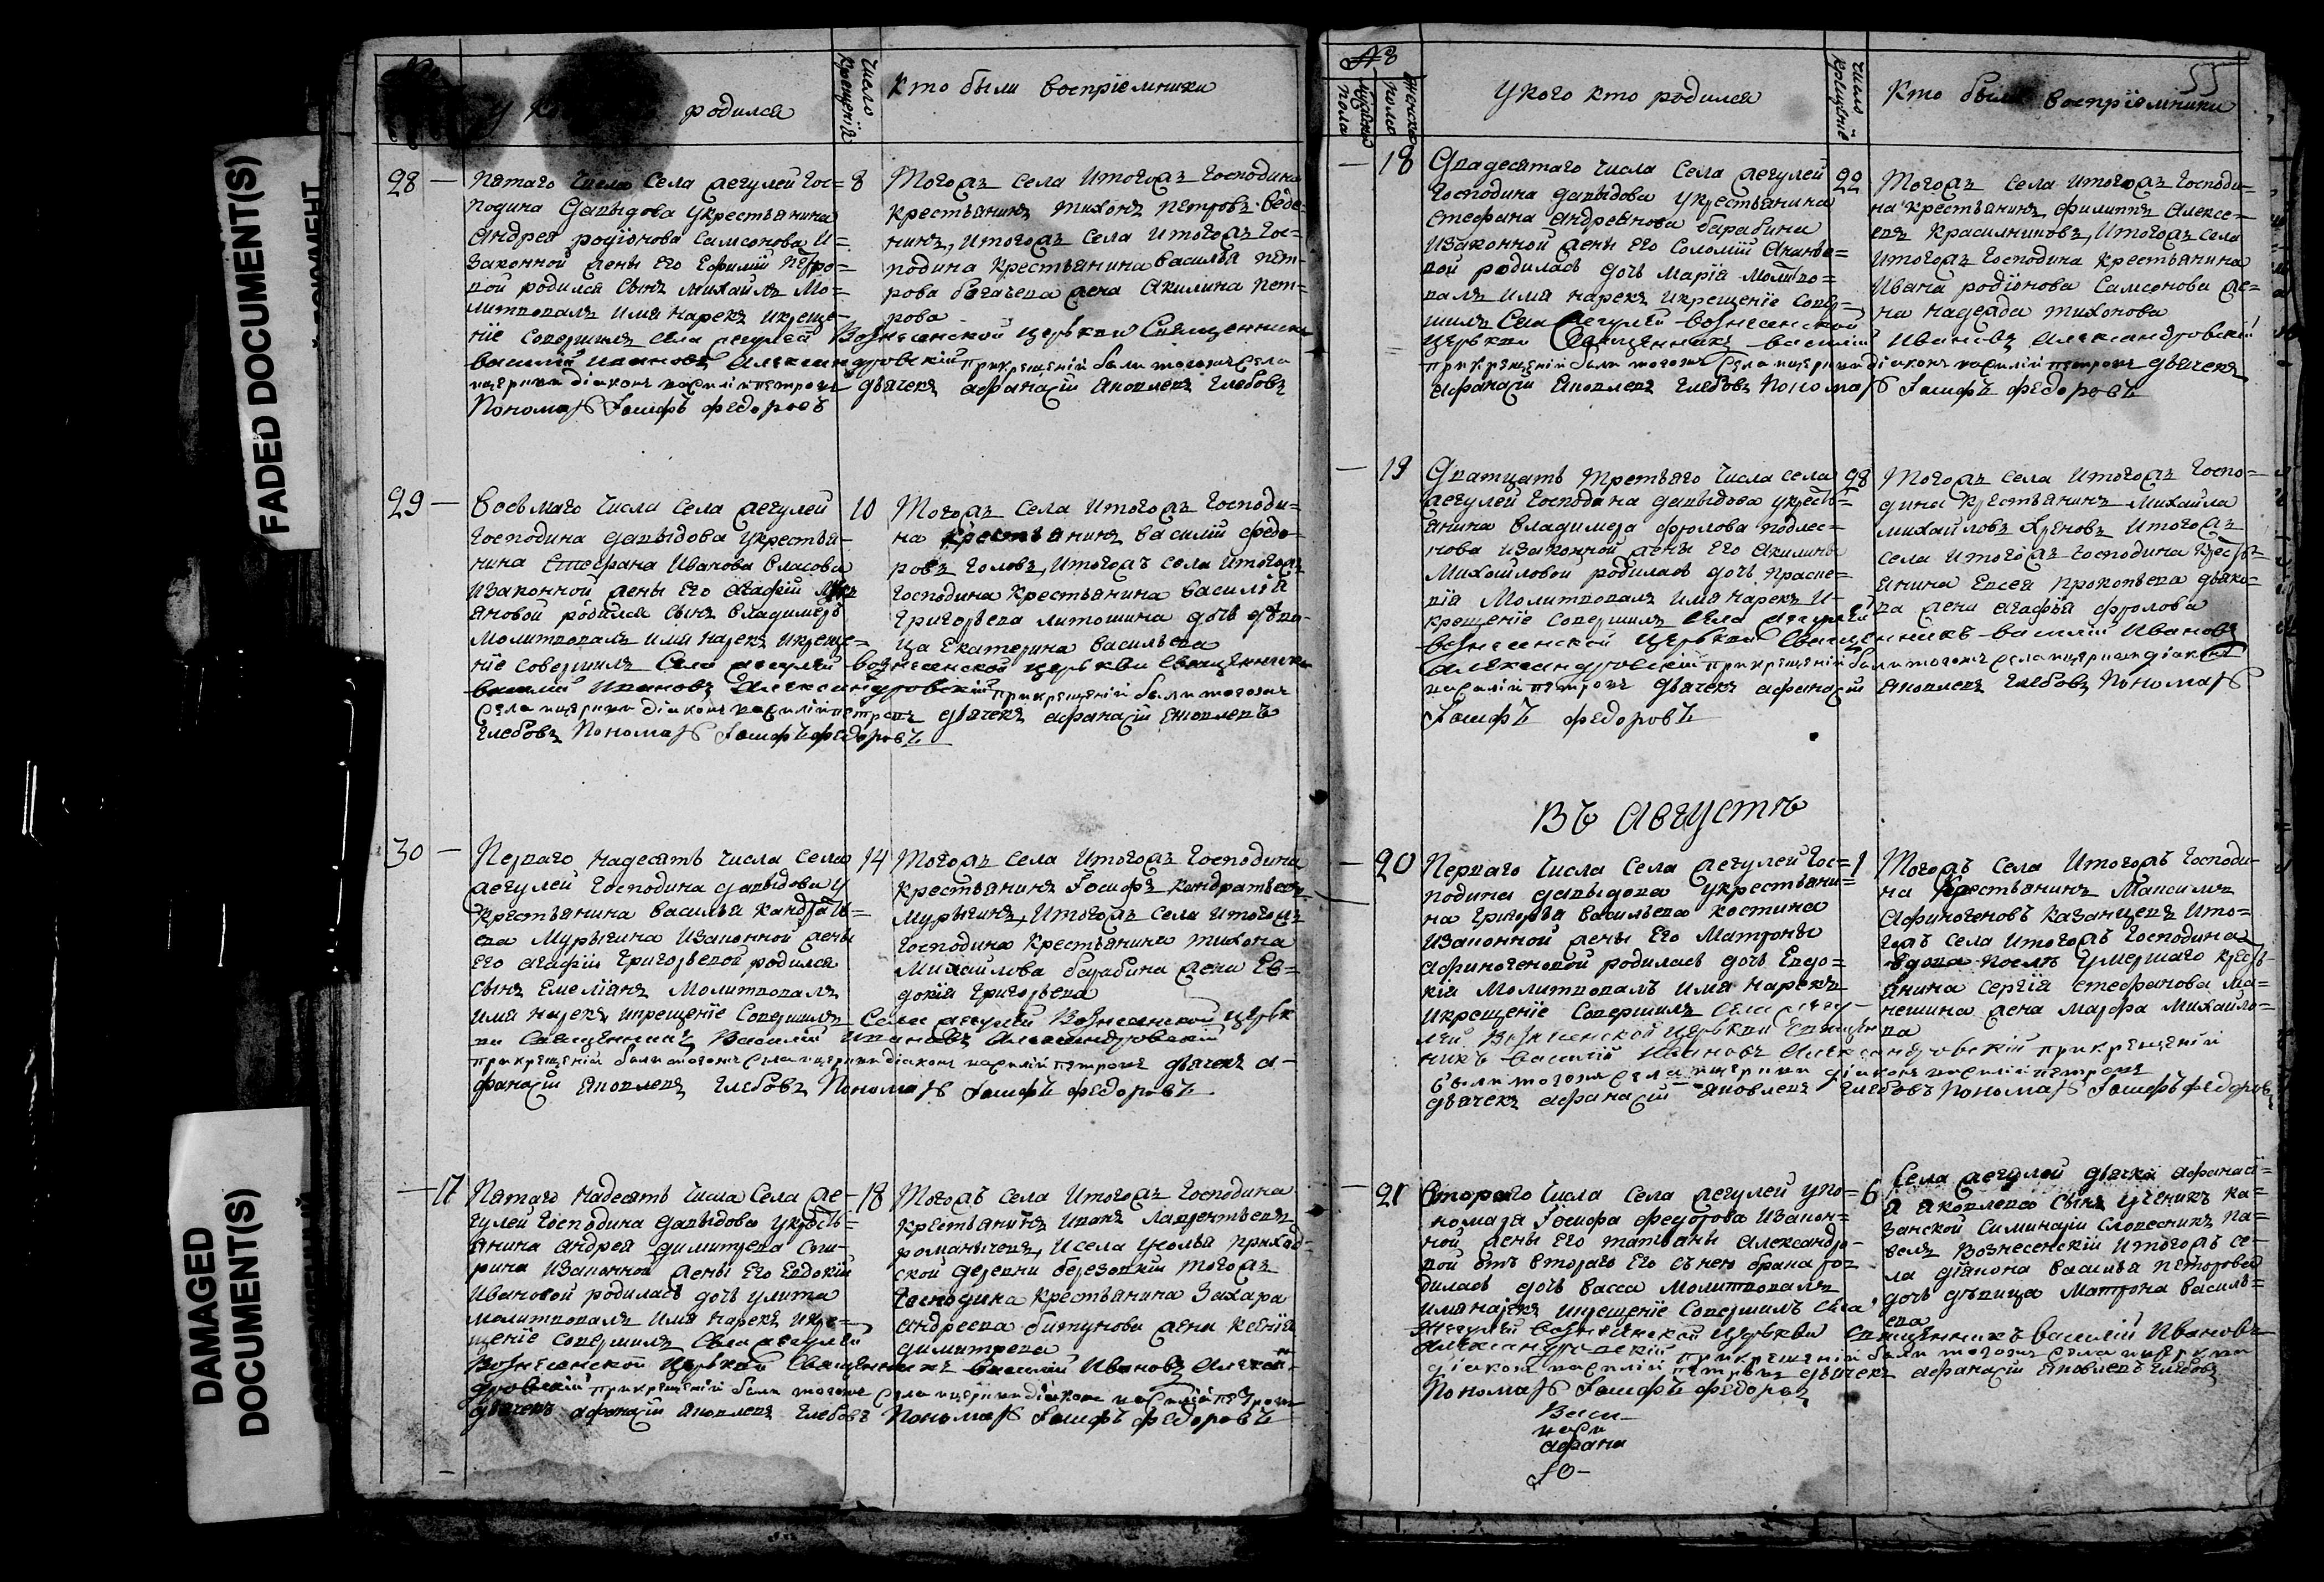 FADED DOCUMENT(S)
DAMAGED
DOCUMENT(S)
родился
Число
крещенія
Кто были воспріемники
28 —
Пятаго числа Села Жегулей Гос=
подина Давыдова укрестьянина
Андрея родіонова Самсонова И=
Законной жены Его Ефиміи Петро=
вой родился Сынъ Михаилъ Мо=
литвовалъ имя нарекъ икреще=
ніе Совершилъ Села Жегулей Вознесенской церькви Священникъ
василій Ивановъ Александровскій прикрещеніи были тогожъ Села
ицеркви діаконъ василій петровъ дьячекъ афанасій Яковлевъ Глебовъ
Пономарь Іосифъ федоровъ
8
Тогожъ села Итогожъ Господина
крестьянинъ тихонъ Петровъ
нинъ, Итогожъ Села Итогожъ Гос=
подина крестьянина василья Пет-
рова богачева жена Акилина Пет=
рова
29 —
Восьмаго числа Села Жегулей
Господина давыдова укрестья-
нина Стефана Иванова Власова
Изаконной жены Его Агафіи
яновой родился Сынъ Владимеръ
молитвовалъ имя нарекъ икреще=
ніе совершилъ Села Жегулей вознесенской церькви Священникъ
василій Ивановъ Александровскій прикрещеніи были тогожъ
Села ицеркви діаконъ василій петровъ дьячекъ афанасій Яковлевъ
Глебовъ Пономарь Іосифъ федоровъ
10
Тогожъ Села Итогожъ Господи=
на крестьянинъ василій федо=
ровъ Головъ, Итогожъ села Итогожъ
Господина крестьянина василія
Григорьева литошина дочь деви-
ца Екатерина васильева
30 —
Перваго надесять числа Села
Жегулей Господина давыдова у
крестьянина василья Кандрать=
ева Мурыгина Изаконной жены
Его агафіи Григорьевой родился
Сынъ Емеліянъ Молитвовалъ
имя нарекъ икрещеніе Совершилъ Села Жегулей Вознесенской церьк
ви Священникъ Василій Ивановъ Александровскій
прикрещеніи были тогожъ Села ицеркви діаконъ василій петровъ дьячекъ а-
фанасій Яковлевъ Глебовъ Пономарь Іосифъ федоровъ
14
Тогожъ села Итогожъ Господина
крестьянинъ Іосифъ Кандратьевъ
Мурыгинъ, Итогожъ Села Итогожъ
Господина крестьянина тихона
Михайлова барабина жена Ев=
докія Григорьева
— 17
Пятаго надесять числа Села Же-
гулей Господина давыдова укресть=
янина андрея димитрева
рина Изаконной жены Его Евдокіи
Ивановой родилась дочь улита
молитвовалъ Имя нарекъ икре=
щеніе совершилъ Села Жегулей
Вознесенской церькви Священникъ Василій Ивановъ Алексан-
дровскій прикрещеніи были тогожъ Села ицеркви діаконъ василій петровъ
дьячекъ афанасій Яковлевъ Глебовъ Пономарь Іосифъ федоровъ
18
Тогожъ села Итогожъ Господина
крестьянинъ Иванъ Лаврентьевъ
романычевъ, Исела усолья приход=
ской деревни березовки тогожъ
Господина крестьянина Захара
андреева битунова жена ксенія
димитрева
55
№ 8
мужеска
пола
женска
пола
Укого кто родился
число
крещенія
Кто были воспріемники
— 18
Двадесятаго числа Села Жегулей
Господина давыдова укрестьянина
Стефана андреянова барабина
Изаконной жены Его Соломіи Ананье=
вой родилась дочь Марія молитво=
валъ имя нарекъ икрещеніе Совер=
шилъ Села Жегулей вознесенской
церькви Священникъ василій Ивановъ Александровскій
прикрещеніи были тогожъ Села ицеркви діаконъ василій петровъ дьячекъ
афанасій Яковлевъ Глебовъ Пономарь Іосифъ федоровъ
22
Тогожъ села Итогожъ Господи=
на крестьянинъ филиппъ Алексе=
евъ красильниковъ, Итогожъ села
Итогожъ Господина крестьянина
Ивана родіонова Самсонова же=
на надежда тихонова
— 19
Дватцать третьяго числа села
Жегулей Господина давыдова укресть=
янина владимера фролова подлес=
нова Изаконной жены Его Акилины
Михайловой родилась дочь праске=
вія Молитвовалъ Имя нарекъ И-
крещеніе Совершилъ Села Жегулей
вознесенской церькви Священникъ василій Ивановъ
Александровскій прикрещеніи были тогожъ Села ицеркви діаконъ
василій петровъ дьячекъ афанасій Яковлевъ Глебовъ Пономарь
Іосифъ федоровъ
28
Тогожъ села Итогожъ Госпо=
дина крестьянинъ Михаила
михайловъ хреновъ Итогожъ
села Итогожъ Господина кресть=
янина Евсея Прокопьева
ва жена агафья фролова
Въ Августѣ
— 20
Перваго числа Села Жегулей Гос=
подина давыдова укрестьяни=
на Григорья васильева костина
Изаконной жены Его Матроны
афиногеновой родилась дочь Евдо=
кія Молитвовалъ имя нарекъ
икрещеніе Совершилъ Села Жегу-
лей Вознесенской церькви Священ
никъ василій Ивановъ Александровскій прикрещеніи
были тогожъ Села ицеркви діаконъ василій петровъ
дьячекъ афанасій Яковлевъ Глебовъ Пономарь Іосифъ федоровъ
1
Тогожъ села Итогожъ Господи-
на крестьянинъ Максимъ
Афиногеновъ казанцевъ Ито=
гожъ села Итогожъ Господина
вдова послѣ умершаго кресть-
янина Сергія Стефанова ма=
нешина жена марфа Михайло=
ва
— 21
Втораго числа Села Жегулей упо=
номаря Іосифа федорова Изакон=
ной жены Его татьяны Александро-
вой отъ втораго Его съ нею брака ро=
дилась дочь васса Молитвовалъ
имя нарекъ икрещеніе Совершилъ Села
Жегулей вознесенской церькви Священникъ василій Ивановъ
Александровскій прикрещеніи были тогожъ Села ицеркви
діаконъ василій петровъ дьячекъ афанасій Яковлевъ Глебовъ
Пономарь Іосифъ федоровъ
6
Села Жегулей дьячка афанасі=
я яковлева Сынъ ученикъ ка=
занской Симинаріи Словесникъ па=
велъ вознесенскій Итогожъ се=
ла діякона василья петрова
дочь девица матрона василь=
ева
Васи
васи
афана
Іо-